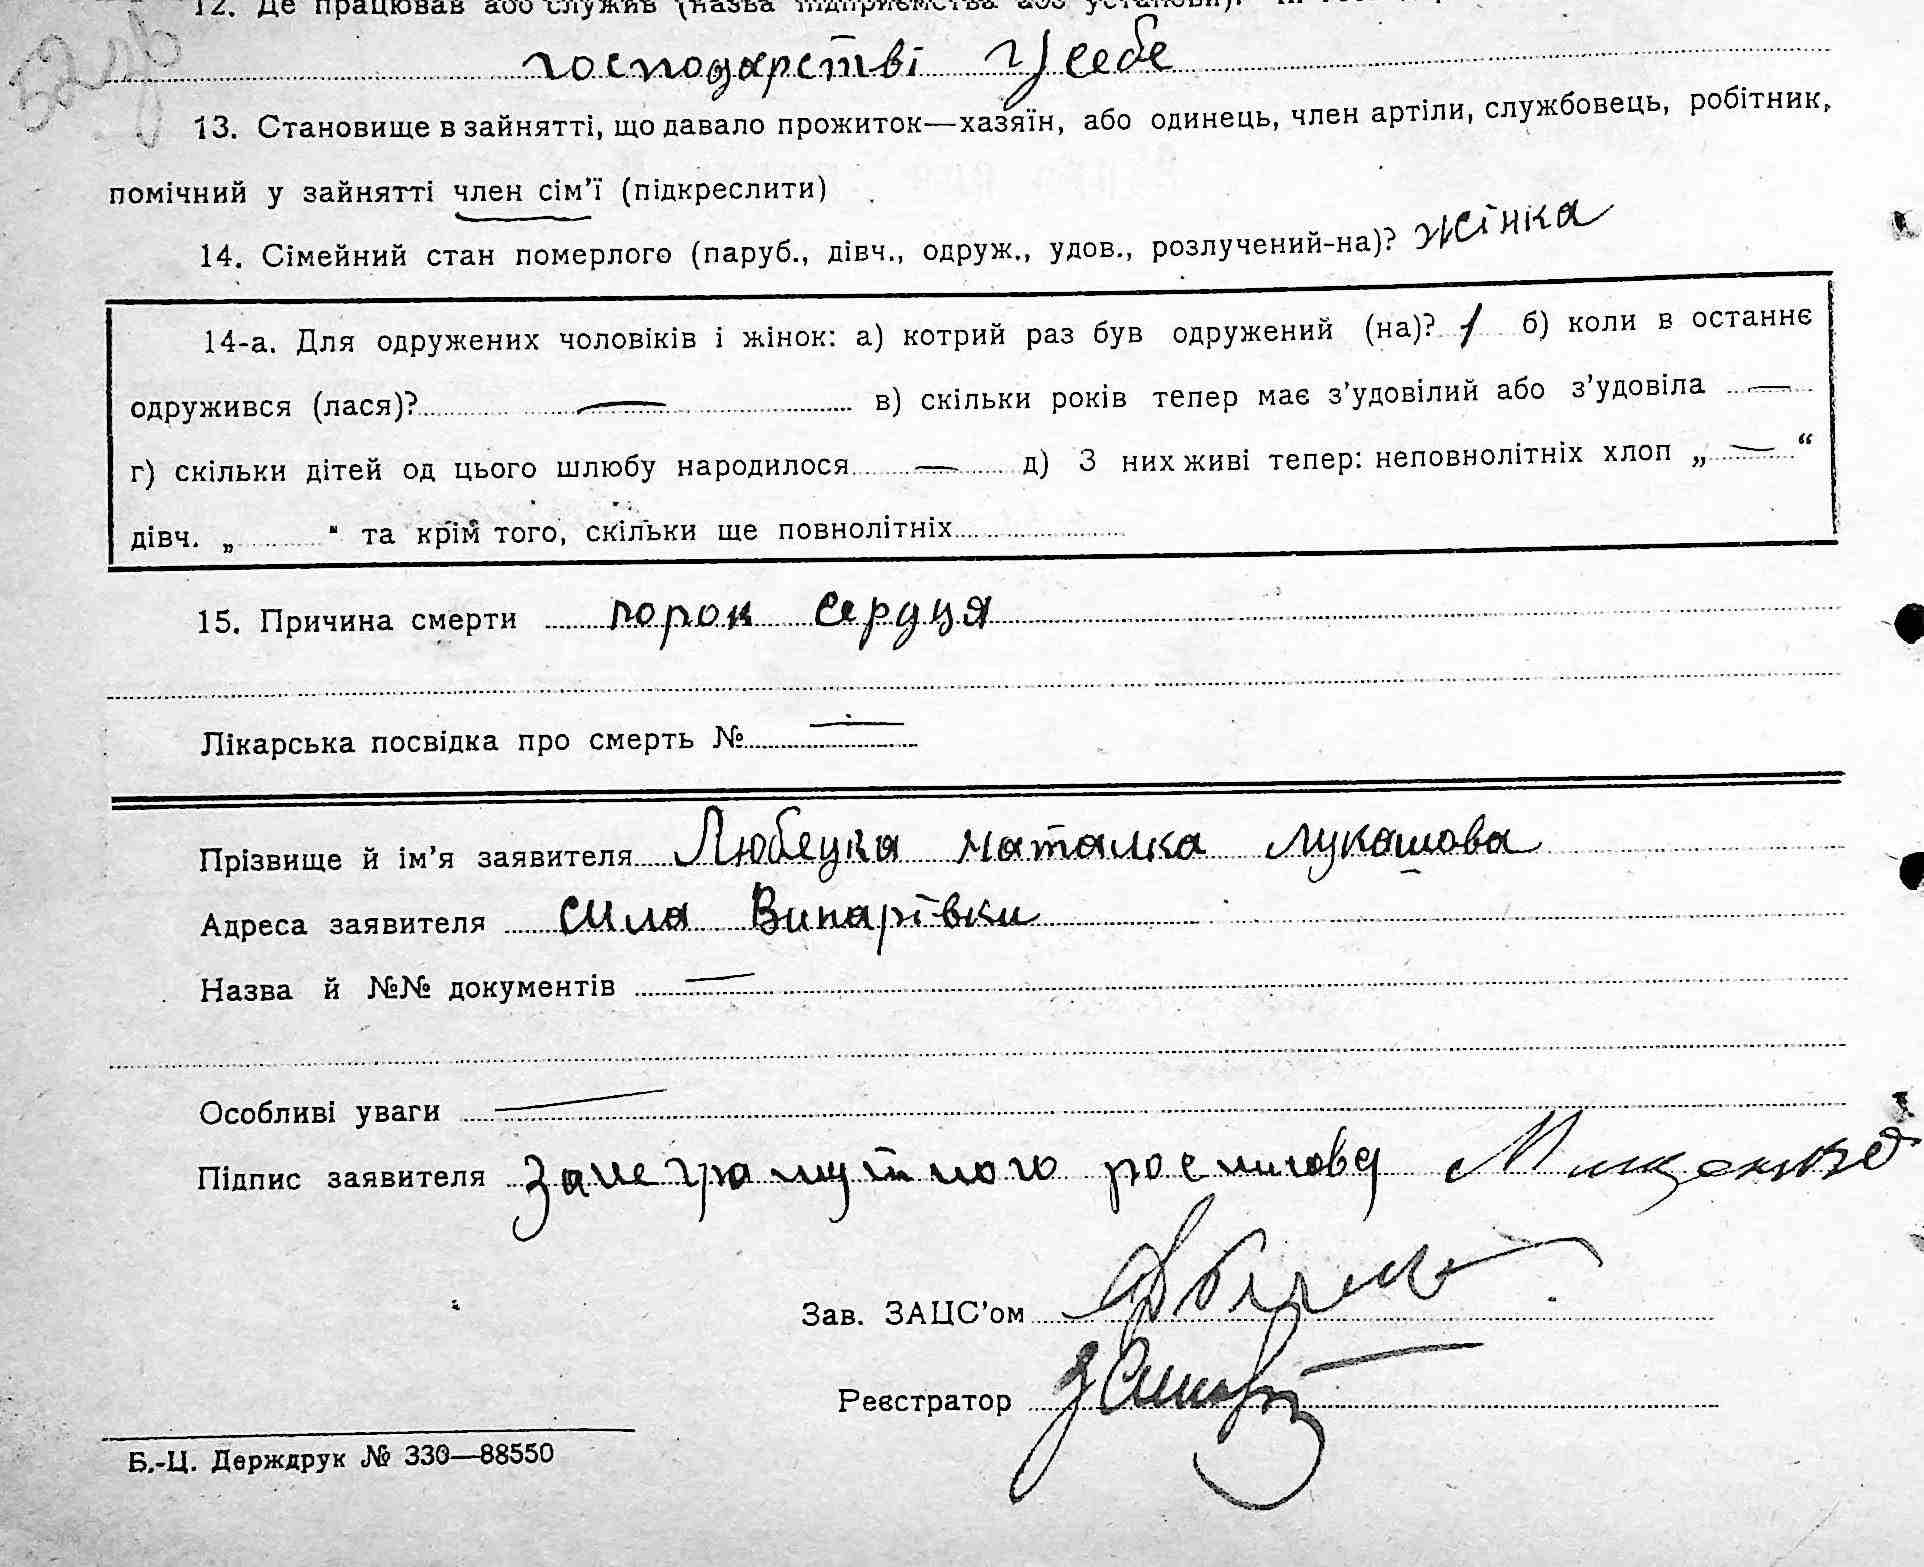 12. Де працював або служив (назва підприємства або установи).
господарстві у себе
13. Становище в зайнятті, що давало прожиток—хазяїн, або одинець, член артіли, службовець, робітник,
помічний у зайнятті член сім'ї (підкреслити)
14. Сімейний стан померлого (паруб., дівч., одруж., удов., розлучений-на)? жінка
14-а. Для одружених чоловіків і жінок: а) котрий раз був одружений (на)? 1 б) коли в останнє
одружився (лася)? — в) скільки років тепер має з'удовілий або з'удовіла —
г) скільки дітей од цього шлюбу народилося — д) З них живі тепер: неповнолітніх хлоп „ — “
дівч. „ “ та крім того, скільки ще повнолітніх
15. Причина смерти порок сердця
Лікарська посвідка про смерть № —
Прізвище й ім'я заявителя Любецка Наталка Лукашова
Адреса заявителя сила Винарівки
Назва й №№ документів —
Особливі уваги —
Підпис заявителя За неграмутного росписовс Мищенко
Зав. ЗАЦС'ом
Реєстратор
Б.-Ц. Держдрук № 330—88550